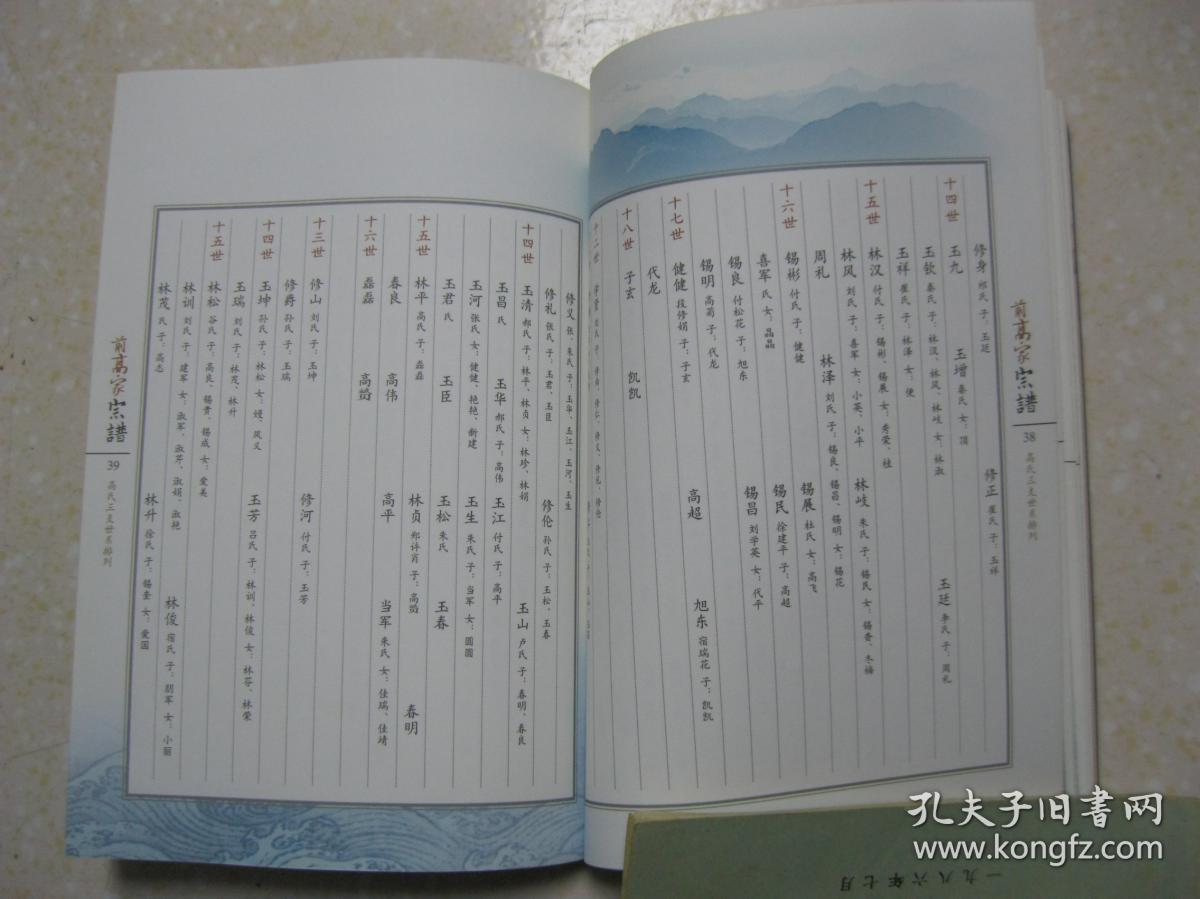 前高家宗譜
38
高氏三支世系排列
修身 祁氏 子：玉廷
修正 崔氏 子：玉祥
十四世
玉九
玉增 秦氏 女：顶
玉廷 李氏 子：周礼
玉钦 秦氏 子：林汉、林风、林岐 女：林淑
玉祥 崔氏 子：林泽 女：便
十五世
林汉 付氏 子：锡彬、锡展 女：秀荣、桂
林风 刘氏 子：喜军 女：小英、小平
林岐 朱氏 子：锡民 女：锡香、冬梅
林泽 刘氏 子：锡良、锡昌、锡明 女：锡花
周礼
十六世
锡彬 付氏 子：健健
锡展 杜氏 女：高飞
喜军 氏 女：晶晶
锡民 徐建平 子：高超
锡良 付松花 子：旭东
锡昌 刘学英 女：代平
锡明 高菊 子：代龙
十七世
健健 段修娟 子：子玄
高超
旭东 宿瑞花 子：凯凯
代龙
十八世
子玄
凯凯
十二世
修义 张、朱氏 子：玉华、玉江、玉河、玉生
修礼 张氏 子：玉君、玉臣
修伦 孙氏 子：玉松、玉春
十四世
玉清 郝氏 子：林平、林贞 女：林珍、林娟
玉山 卢氏 子：春明、春良
玉昌 氏
玉华 郝氏 子：高伟
玉江 付氏 子：高平
玉河 张氏 女：健健、艳艳、新建
玉生 朱氏 子：当军 女：圆圆
玉君 氏
玉臣
玉松 朱氏
玉春
十五世
林平 高氏 子：磊磊
林贞 郑许肖 子：高蹈
春明
春良
高伟
高平
当军 朱氏 女：佳瑞、佳靖
十六世
磊磊
高蹈
十三世
修山 刘氏 子：玉坤
修河 付氏 子：玉芳
修爵 孙氏 子：玉瑞
十四世
玉坤 孙氏 子：林松 女：嫚、凤义
玉芳 吕氏 子：林训、林俊 女：林芬、林荣
玉瑞 刘氏 子：林茂、林升
十五世
林松 谷氏 子：高良、锡贵、锡成 女：爱美
林训 刘氏 子：建军 女：淑军、淑芹、淑娟、淑艳
林俊 宿氏 子：朋军 女：小丽
林茂 氏 子：高志
林升 徐氏 子：锡奎 女：爱国
前高家宗譜
39
高氏三支世系排列
一九八六年七月
孔夫子旧书网
www.kongfz.com